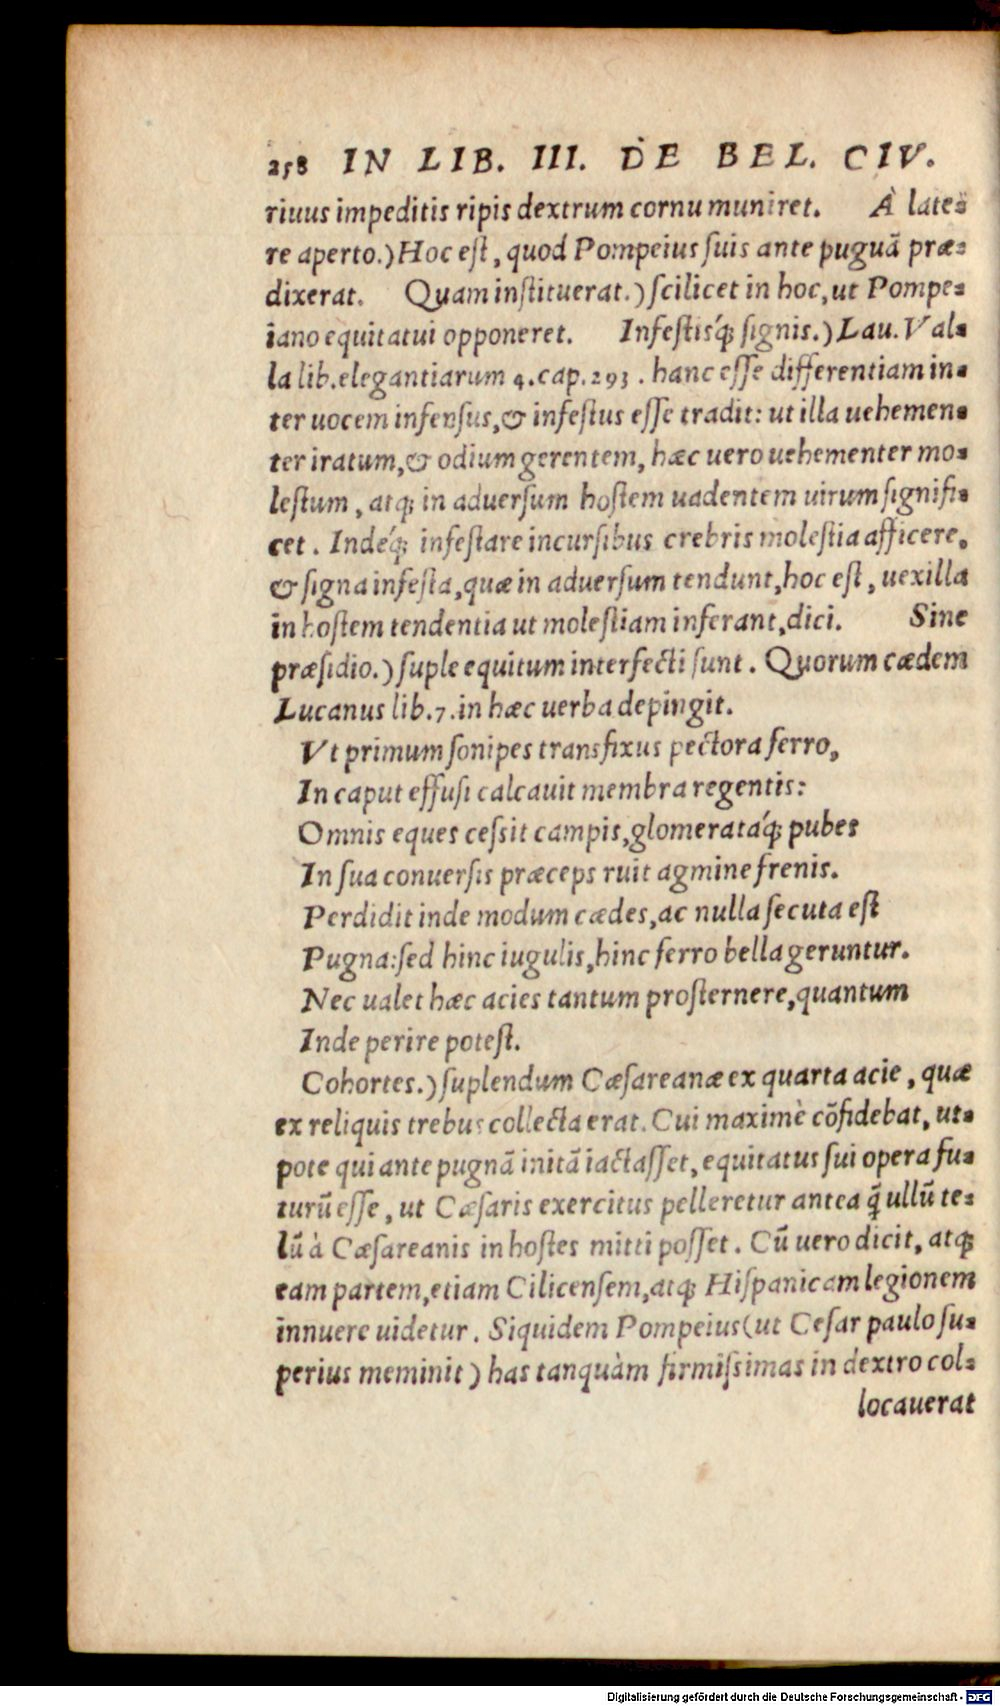 258 IN LIB. III. DE BEL. CIV.
riuus impeditis ripis dextrum cornu muniret. À late=
re aperto.) Hoc est, quod Pompeius suis ante puguã præ=
dixerat. Quam instituerat.) scilicet in hoc, ut Pompe=
iano equitatui opponeret. Infestisq́; signis.) Lau. Val=
la lib. elegantiarum 4. cap. 293. hanc esse differentiam in=
ter uocem infensus, & infestus esse tradit: ut illa uehemen=
ter iratum, & odium gerentem, hæc uero uehementer mo=
lestum, atq; in aduersum hostem uadentem uirum signifi=
cet. Indeq́; infestare incursibus crebris molestia afficere,
& signa infesta, quæ in aduersum tendunt, hoc est, uexilla
in hostem tendentia ut molestiam inferant, dici. Sine
præsidio.) suple equitum interfecti sunt. Quorum cædem
Lucanus lib. 7. in hæc uerba depingit.
Vt primum sonipes transfixus pectora ferro,
In caput effusi calcauit membra regentis:
Omnis eques cessit campis, glomerataq́; pubes
In sua conuersis præceps ruit agmine frenis.
Perdidit inde modum cædes, ac nulla secuta est
Pugna: sed hinc iugulis, hinc ferro bella geruntur.
Nec ualet hæc acies tantum prosternere, quantum
Inde perire potest.
Cohortes.) suplendum Cæsareanæ ex quarta acie, quæ
ex reliquis trebus collecta erat. Cui maximè cõfidebat, ut=
pote qui ante pugnã initã iactasset, equitatus sui opera fu=
turũ esse, ut Cæsaris exercitus pelleretur antea q̃ ullũ te=
lũ à Cæsareanis in hostes mitti posset. Cũ uero dicit, atq;
eam partem, etiam Cilicensem, atq; Hispanicam legionem
innuere uidetur. Siquidem Pompeius (ut Cesar paulo su=
perius meminit) has tanquàm firmissimas in dextro col=
locauerat
Digitalisierung gefördert durch die Deutsche Forschungsgemeinschaft - DFG